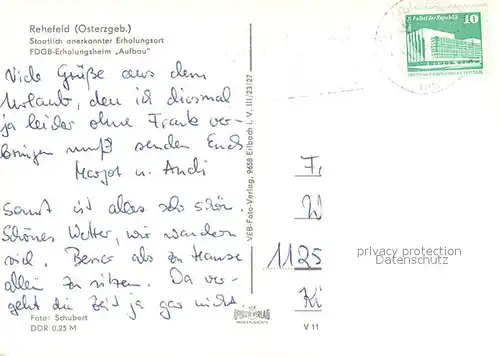 Rehefeld (Osterzgeb.)
Staatlich anerkannter Erholungsort
FDGB-Erholungsheim „Aufbau"
Viele Grüße aus dem
Urlaub, den ich diesmal
ja leider ohne Frank ver-
bringen muß senden Euch
Margot u. Andi
Sonst ist alles sehr schön.
Schönes Wetter, wir wandern
viel. Besser als zu Hause
allein zu sitzen. Da ver-
geht die Zeit ja gar nicht.
Foto: Schubert
DDR 0,25 M
VEB-Foto-Verlag, 9658 Erlbach L. V. III/23/27
Palast der Republik
10
1125
V 11
privacy protection
AKPOOL.DE